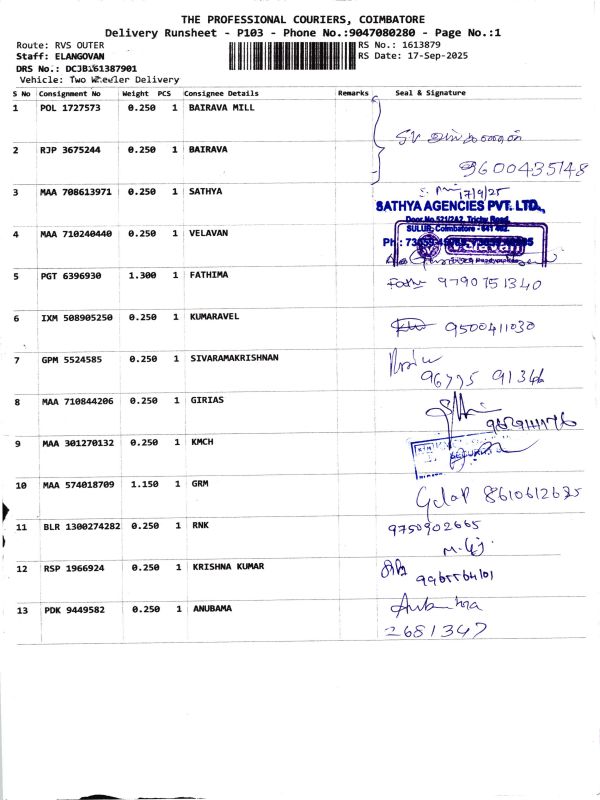 THE PROFESSIONAL COURIERS, COIMBATORE
Delivery Runsheet - P103 - Phone No.:9047080280 - Page No.:1
Route: RVS OUTER RS No.: 1613879
Staff: ELANGOVAN RS Date: 17-Sep-2025
DRS No.: DCJB161387901
Vehicle: Two Wheeler Delivery
S No Consignment No Weight PCS Consignee Details Remarks Seal & Signature
1 POL 1727573 0.250 1 BAIRAVA MILL
2 RJP 3675244 0.250 1 BAIRAVA 9600435148
3 MAA 708613971 0.250 1 SATHYA 17/9/25
SATHYA AGENCIES PVT. LTD.,
Door.No.521/2A2, Trichy Road,
SULUR, Coimbatore - 641 402.
4 MAA 710240440 0.250 1 VELAVAN Ph :
5 PGT 6396930 1.300 1 FATHIMA 9790751340
6 IXM 508905250 0.250 1 KUMARAVEL 9500411030
7 GPM 5524585 0.250 1 SIVARAMAKRISHNAN
96775 91366
8 MAA 710844206 0.250 1 GIRIAS
9 MAA 301270132 0.250 1 KMCH
10 MAA 574018709 1.150 1 GRM
11 BLR 1300274282 0.250 1 RNK 9750902665
12 RSP 1966924 0.250 1 KRISHNA KUMAR
13 PDK 9449582 0.250 1 ANUBAMA
2681347